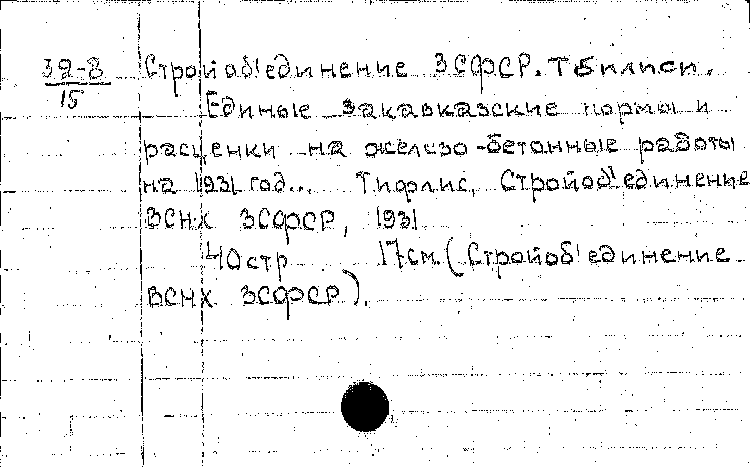 32-8 Строй об'единение ЗСФСР. Тбилиси.
15 Единые Закавказские нормы и
расценки на железо-бетонные работы
на 1931 год... Тифлис, Стройоб'единение
ВСНХ ЗСФСР, 1931
40стр 17см. (Стройоб'единение
ВСНХ ЗСФСР).